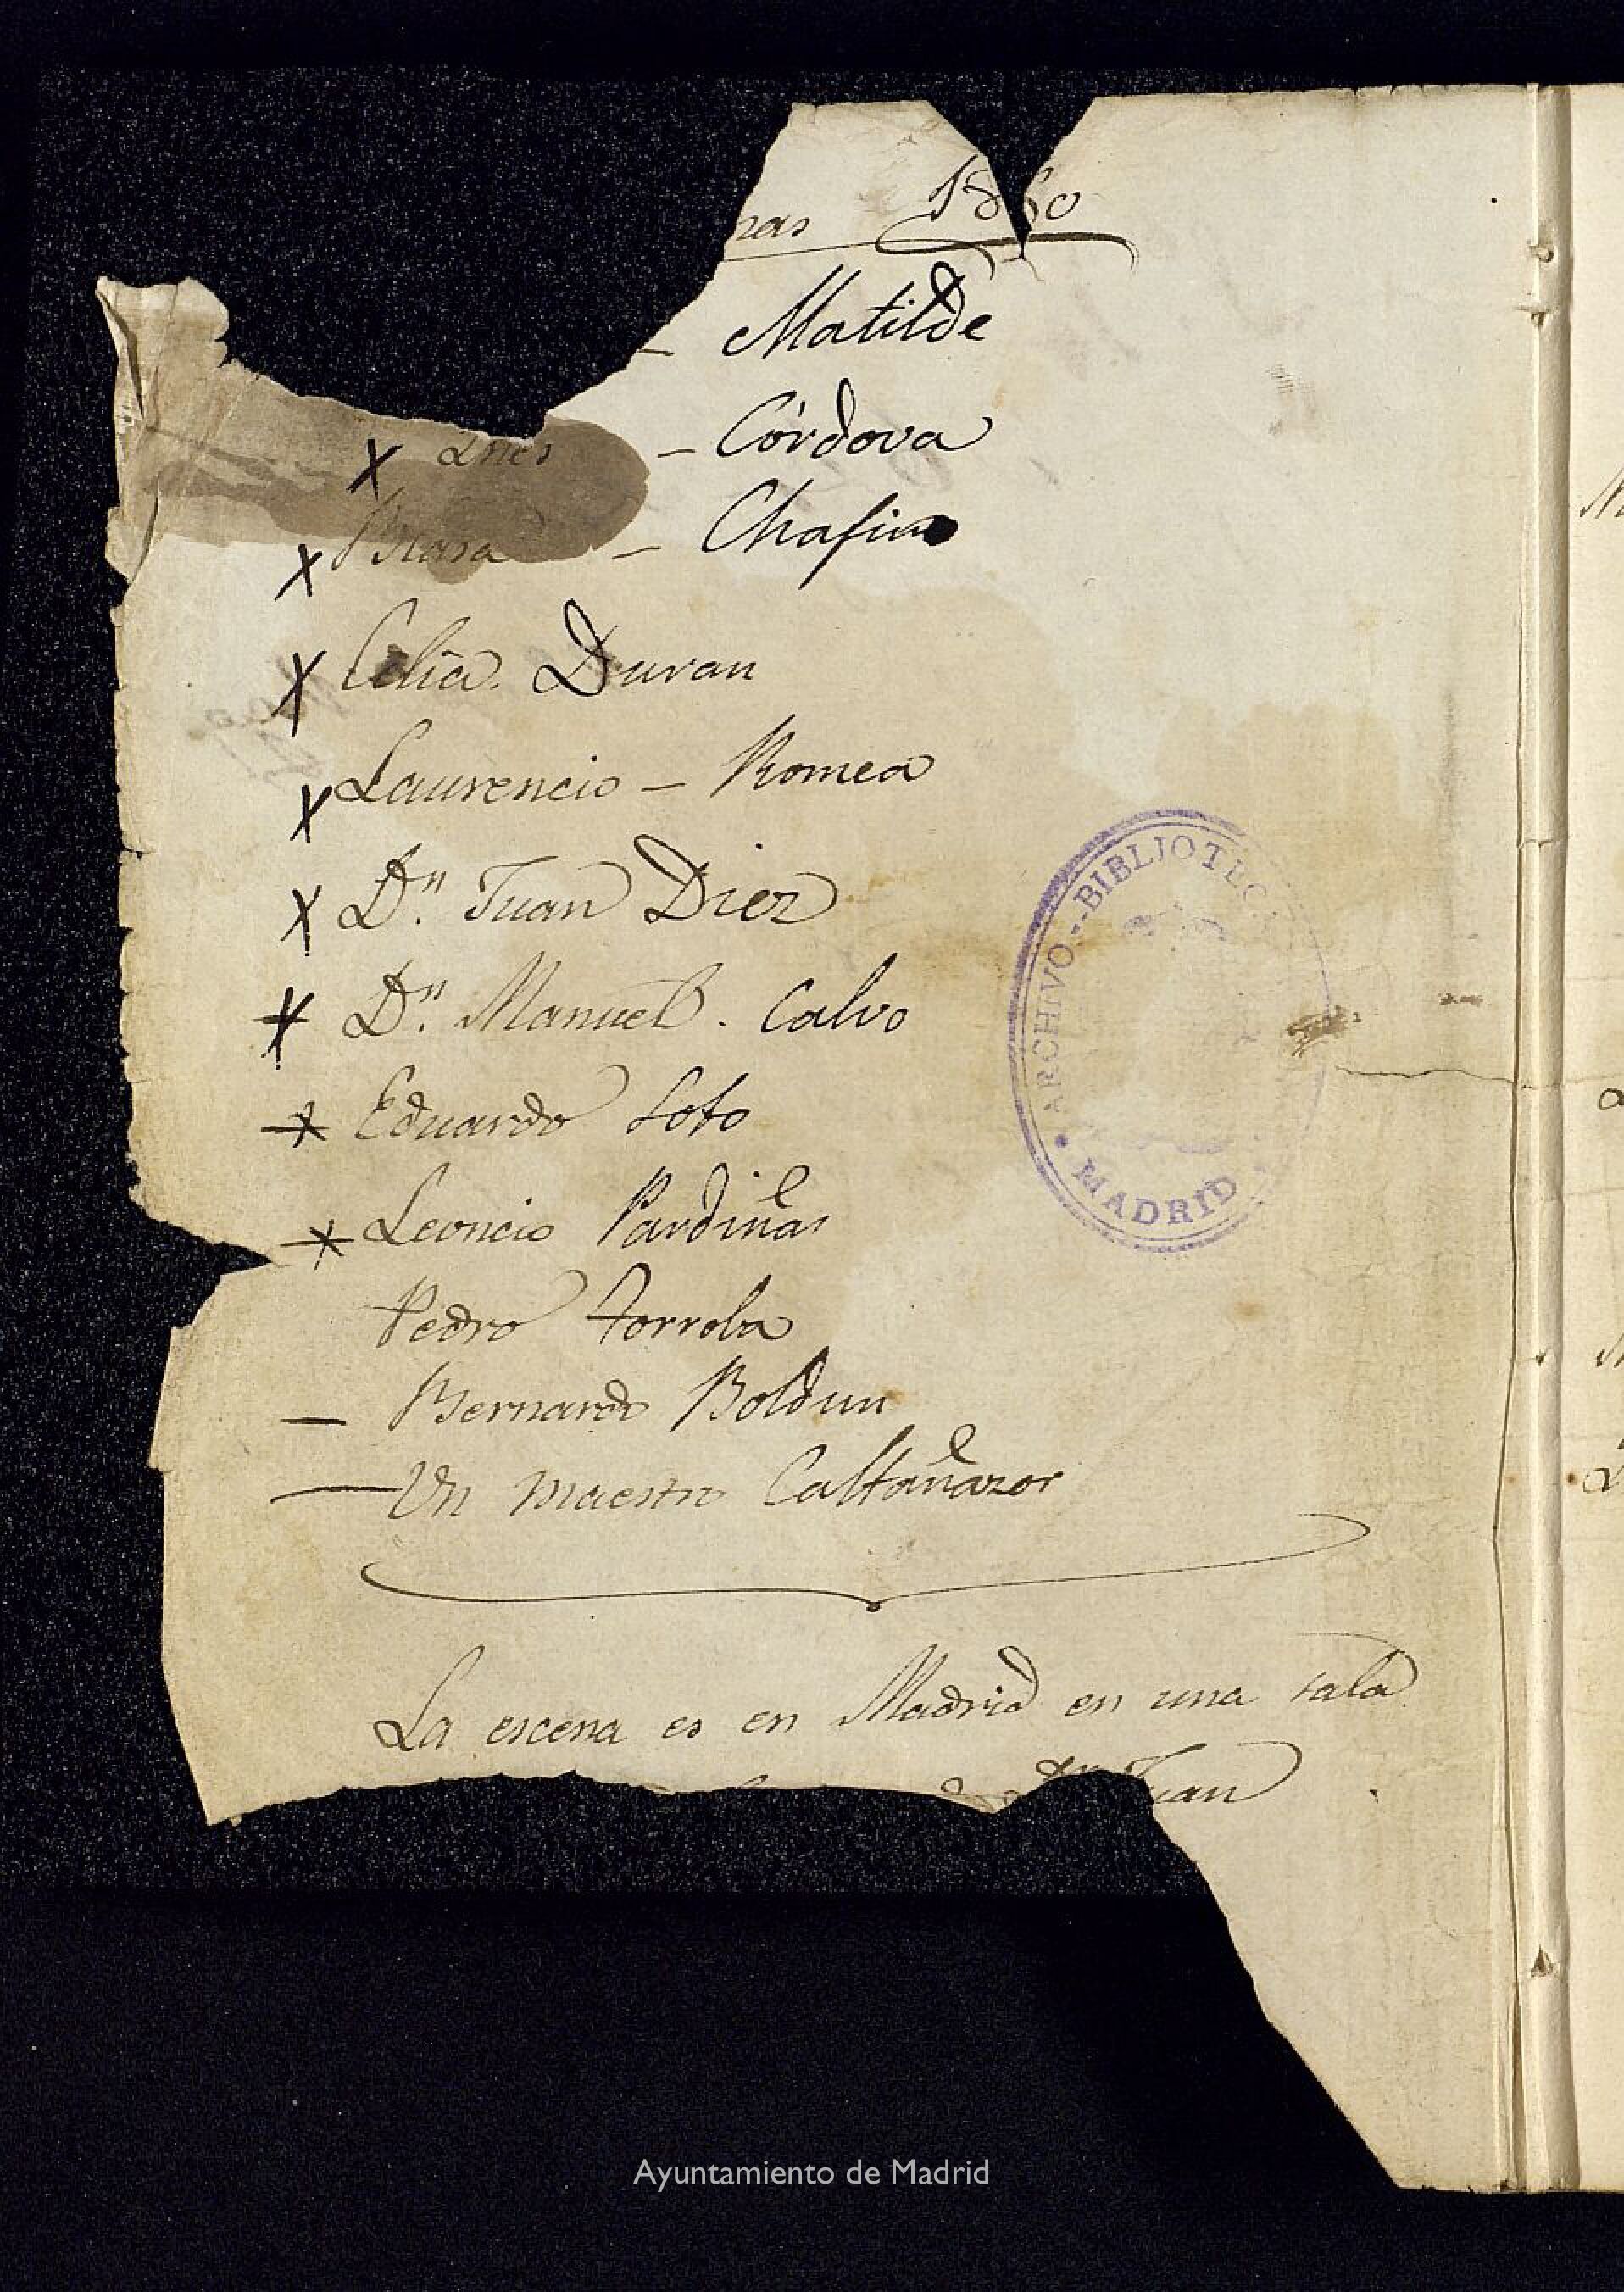 nas 18 0
- Matilde
x Ines - Córdova
x Blasa - Chafino
x Celia. Duran
x Laurencio - Romea
x Dn. Juan Diez
x Dn. Manuel. Calvo
x Eduardo Soto
x Leoncio Pardiñas
Pedro Torroba
- Bernardo Boldun
- Un maestro Caltañazor
La escena es en Madrid en una sala
Dn Juan
ARCHIVO--BIBLIOTECA
MADRID
Ayuntamiento de Madrid